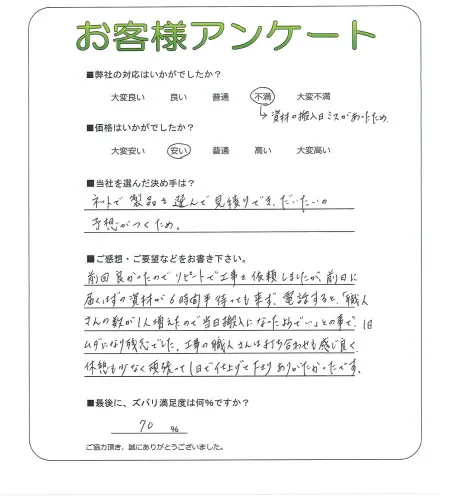 お客様アンケート
■弊社の対応はいかがでしたか？
大変良い 良い 普通 不満 大変不満
↳資材の搬入日ミスがあったため.
■価格はいかがでしたか？
大変安い 安い 普通 高い 大変高い
■当社を選んだ決め手は？
ネットで製品を選んで見積りでき、だいたいの
予想がつくため。
■ご感想・ご要望などをお書き下さい。
前回良かったのでリピートで工事を依頼しましたが、前日に
届くはずの資材が6時間半待っても来ず、電話すると、「職人
さんの数が1人増えたので当日搬入になったようで」との事で、1日
ムダになり残念でした。工事の職人さんは打ち合わせも感じ良く、
休憩も少なく頑張って1日で仕上げて下さりありがたかったです。
■最後に、ズバリ満足度は何％ですか？
70 ％
ご協力頂き、誠にありがとうございました。